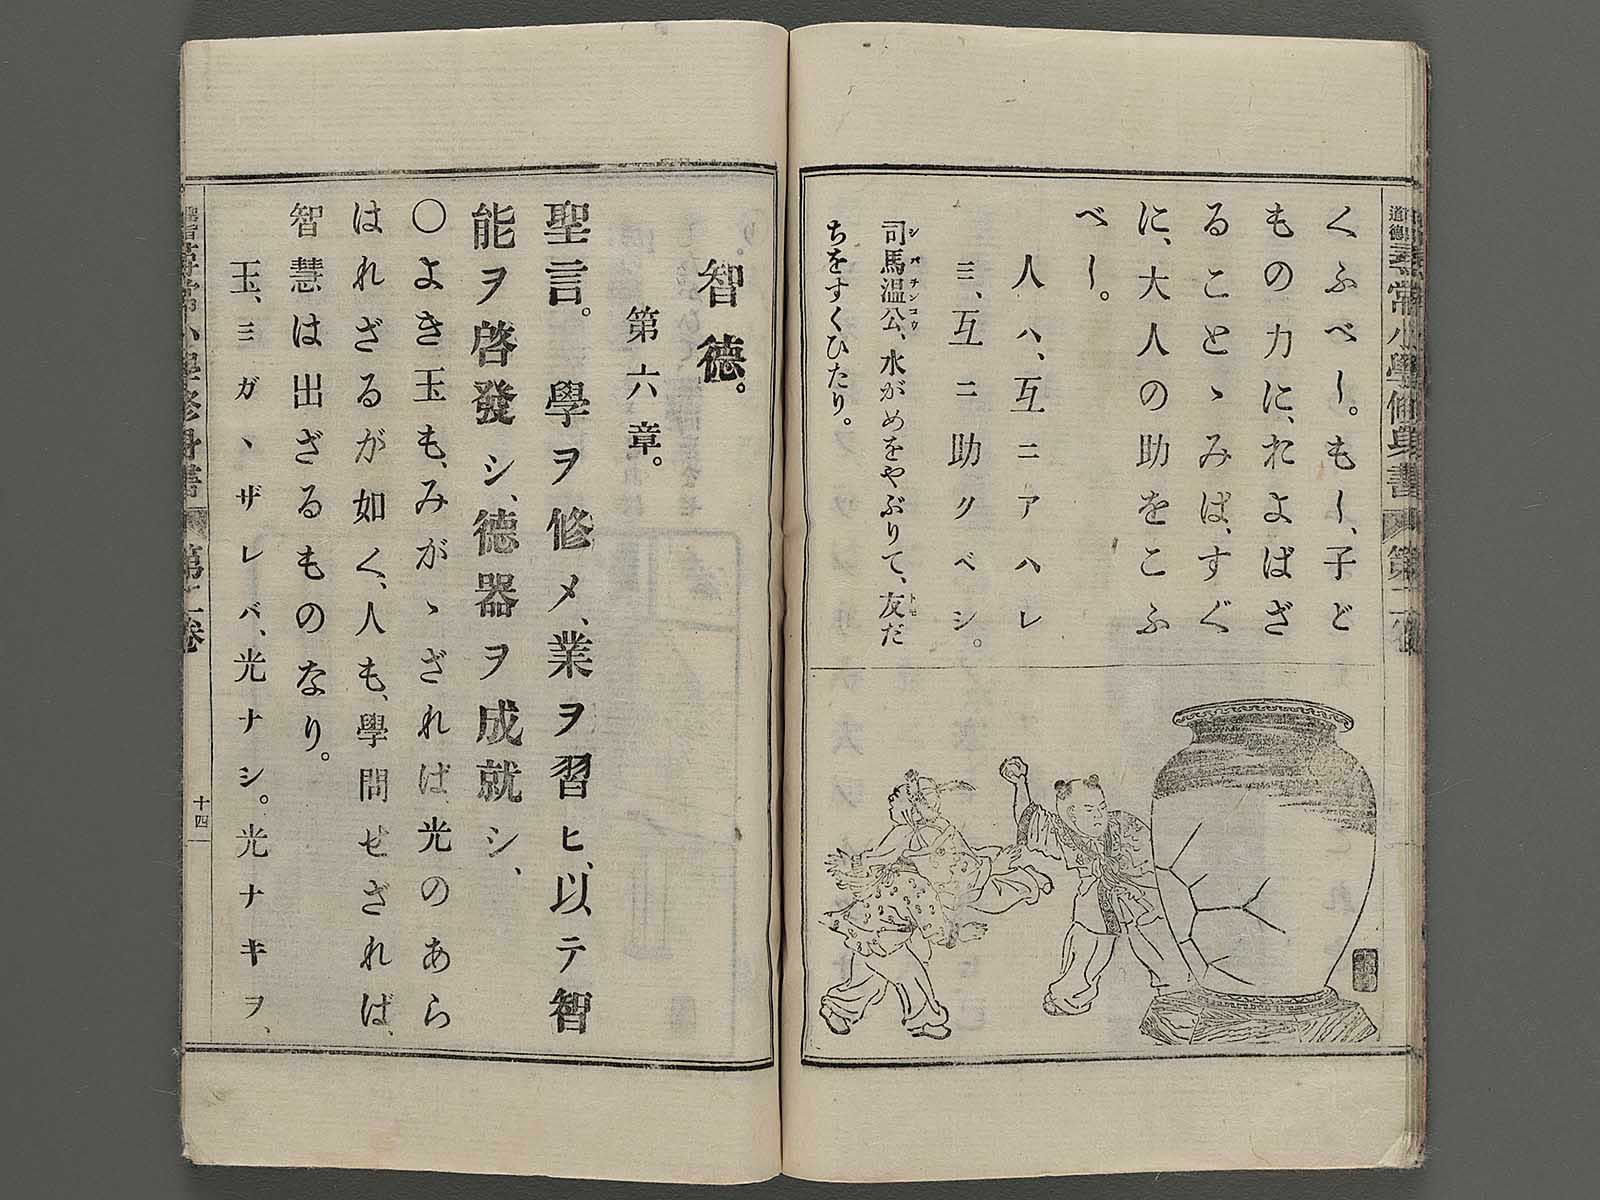 くふべし。もし、子ど
もの力に、およばざ
ることゝみば、すぐ
に、大人の助をこふ
べし。
人ハ、互ニアハレ
ミ、互ニ助クベシ。
司馬温公、水がめをやぶりて、友だ
ちをすくひたり。
尋常小學修身書
智德。
第六章。
聖言。學ヲ修メ、業ヲ習ヒ、以テ智
能ヲ啓發シ、德器ヲ成就シ、
〇よき玉も、みがゝざれば、光のあら
はれざるが如く、人も、學問せざれば、
智慧は出ざるものなり。
玉、ミガヽザレバ、光ナシ。光ナキヲ、
十四